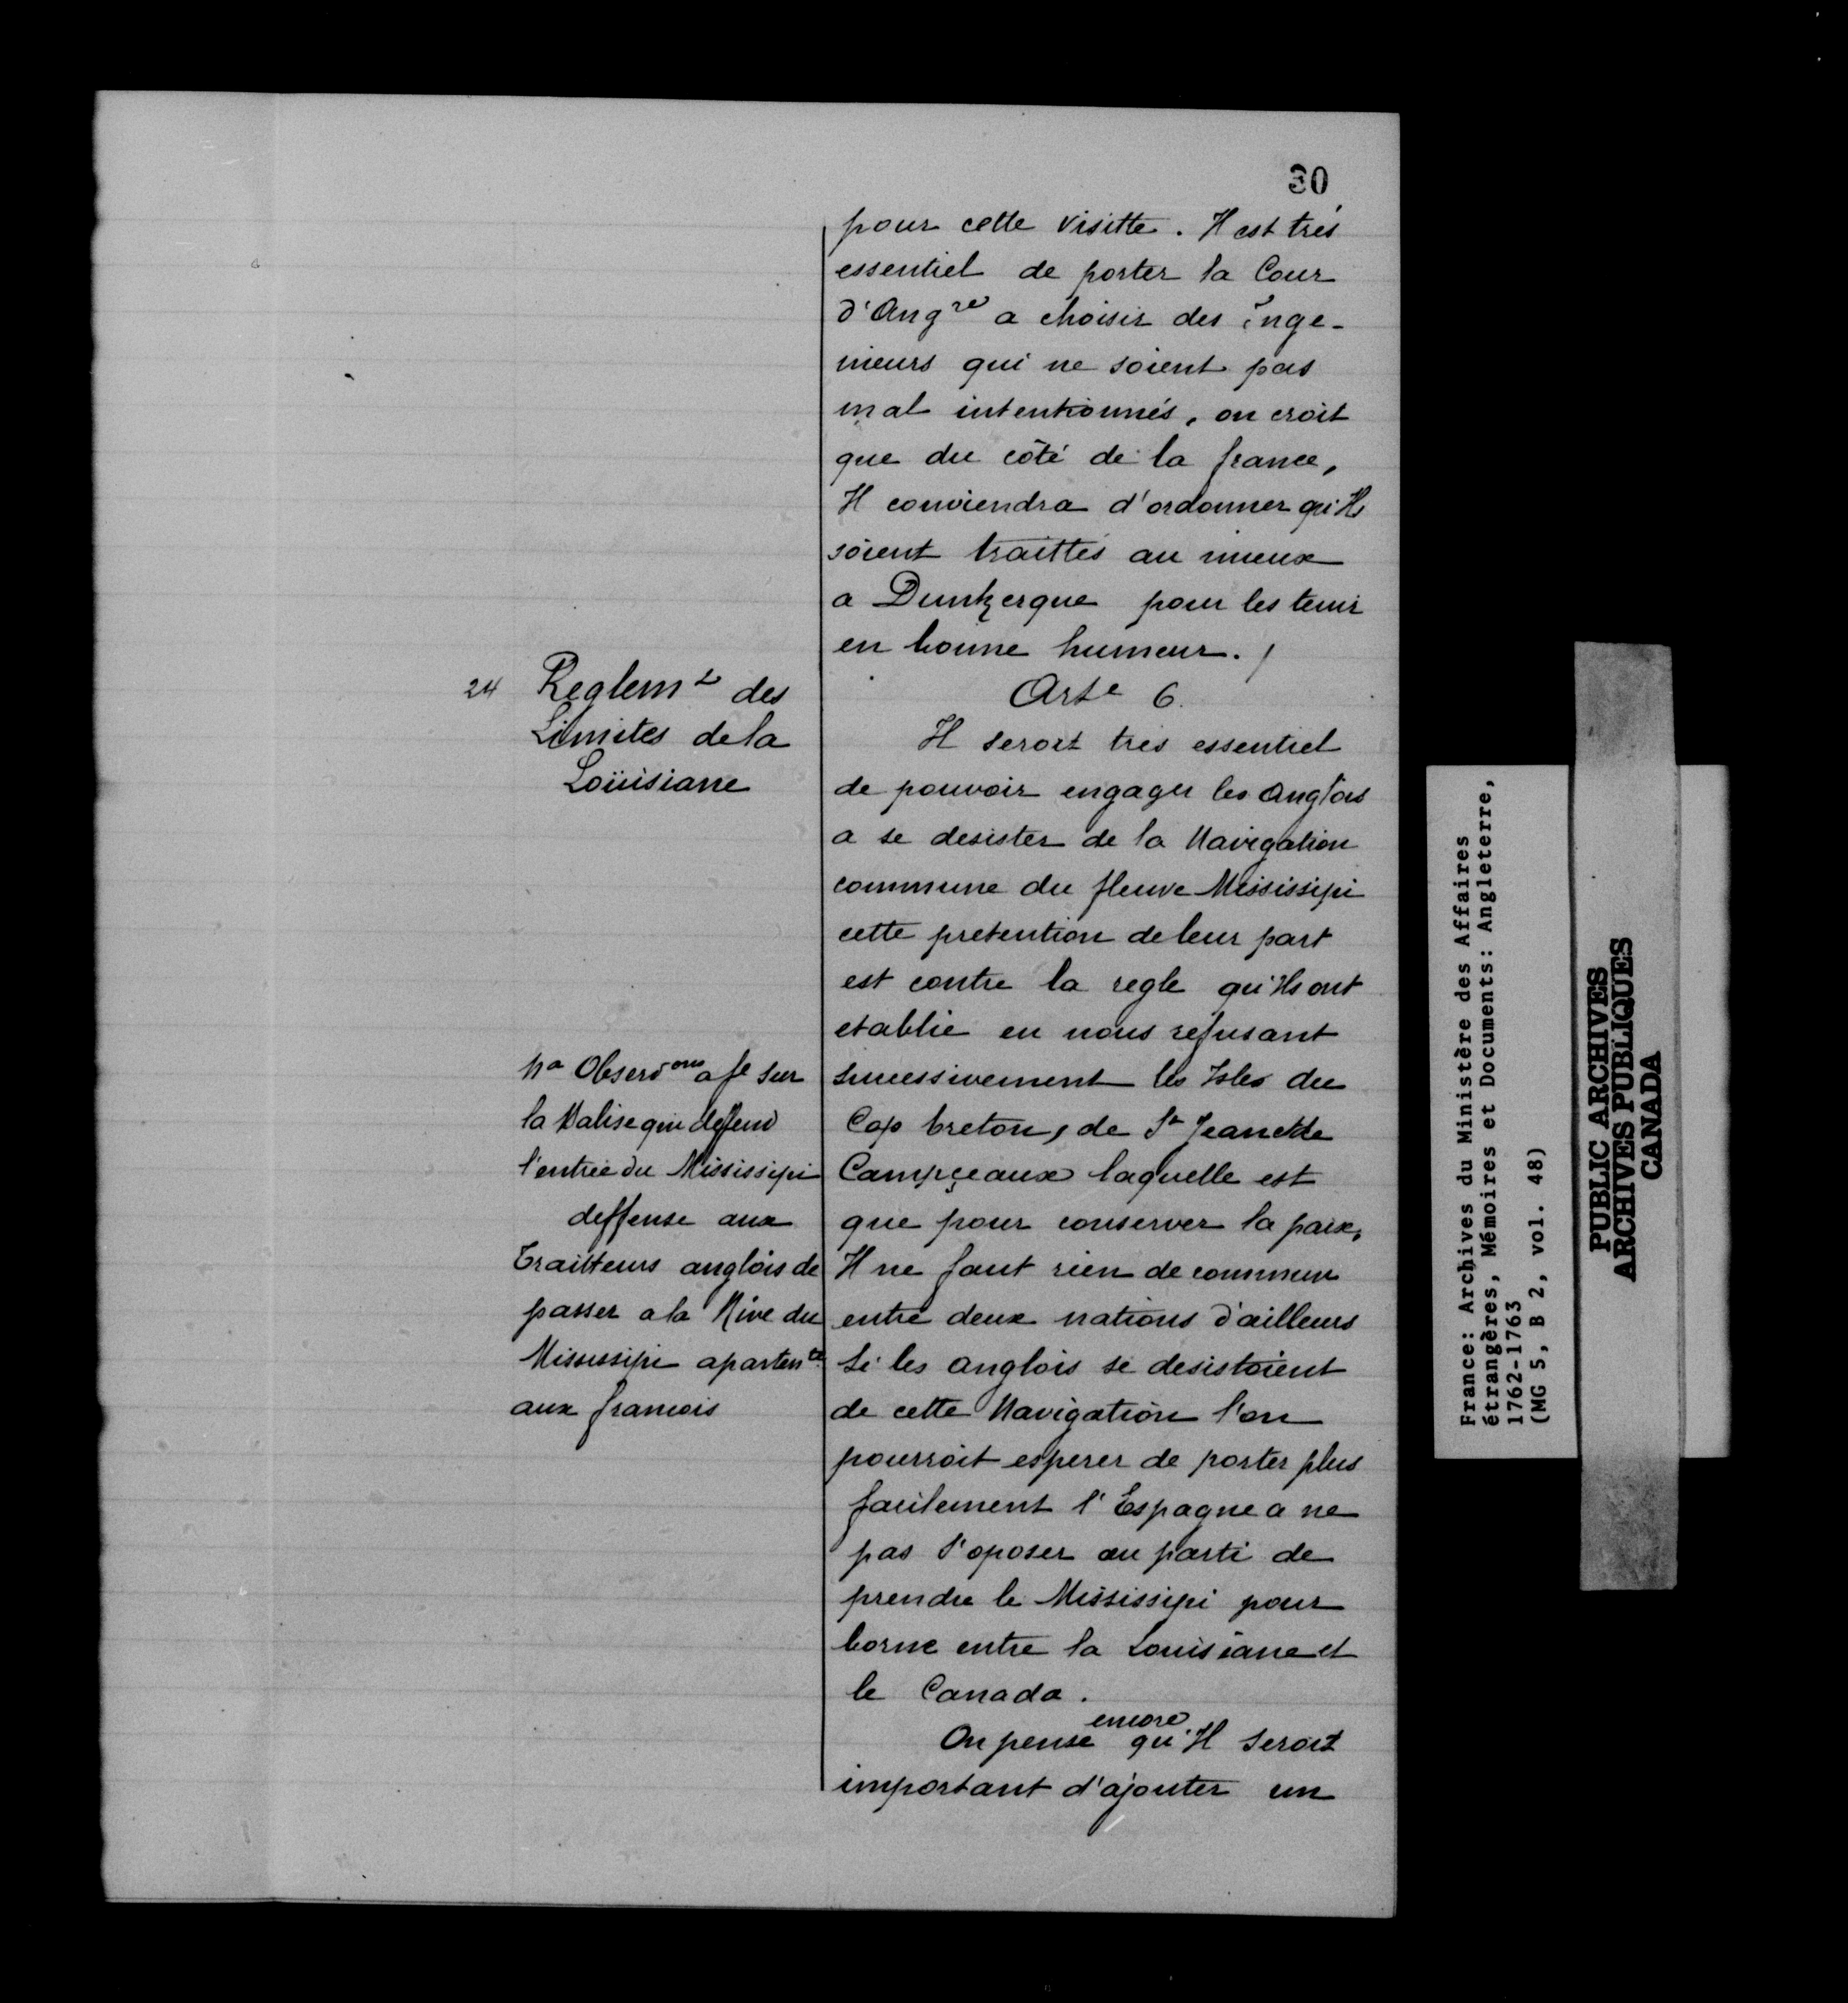 30
pour cette visitte. Il est très
essentiel de porter la Cour
d'Ang^re a choisir des inge-
nieurs qui ne soient pas
mal intentionnés, on croit
que du côté de la france,
Il conviendra d'ordonner qu'Ils
soient traittés au mieux
a Dunkerque pour les tenir
en bonne humeur. /
24 Reglem^t des
Limites de la
Loüisiane
Art^e 6.
Il seroit très essentiel
de pouvoir engager les anglois
a se desister de la Navigation
commune du fleuve Mississipi
cette pretention de leur part
est contre la regle qu'Ils ont
etablie en nous refusant
successivement les Isles du
Cap breton, de S^t Jean et de
Campçeaux laquelle est
que pour conserver la paix,
Il ne faut rien de commun
entre deux nations d'ailleurs
Si les anglois se desistoient
de cette Navigation l'on
pourroit esperer de porter plus
facilement l'Espagne a ne
pas s'oposer au parti de
prendre le Mississipi pour
borne entre la Louisiane et
le Canada.
On pense encore qu'Il seroit
important d'ajouter un
N^a Observ^ons a fe sur
la Balise qui deffend
l'entrée du Mississipi
deffense aux
Traitteurs anglois de
passer a la Rive du
Mississipi aparten^te
aux francois
France: Archives du Ministère des Affaires
étrangères, Mémoires et Documents: Angleterre,
1762-1763
(MG 5, B 2, vol. 48)
PUBLIC ARCHIVES
ARCHIVES PUBLIQUES
CANADA